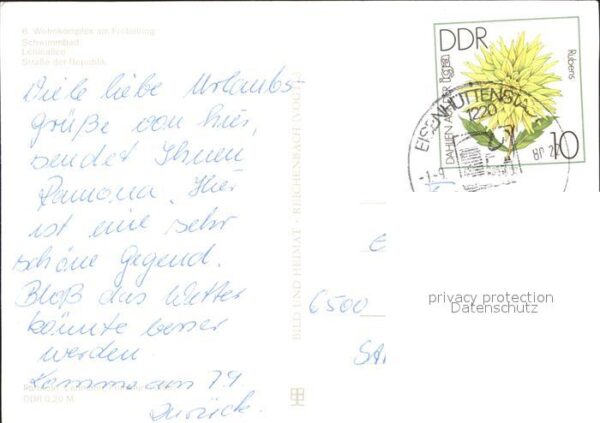 6. Wohnkomplex am Fröbelring
Schwimmbad
Leninallee
Straße der Republik
Viele liebe Urlaubs-
grüße von hier,
sendet Ihnen
Ramona. Hier
ist eine sehr
schöne Gegend.
Bloß das Wetter
könnte besser
werden.
Komme am 7.9.
zurück.
DDR 0,20 M
BILD UND HEIMAT · REICHENBACH (VOGTL)
DDR
DAHLIEN AUS DER
Rubens
10
EISENHÜTTENSTA
1220
6500
privacy protection
Datenschutz